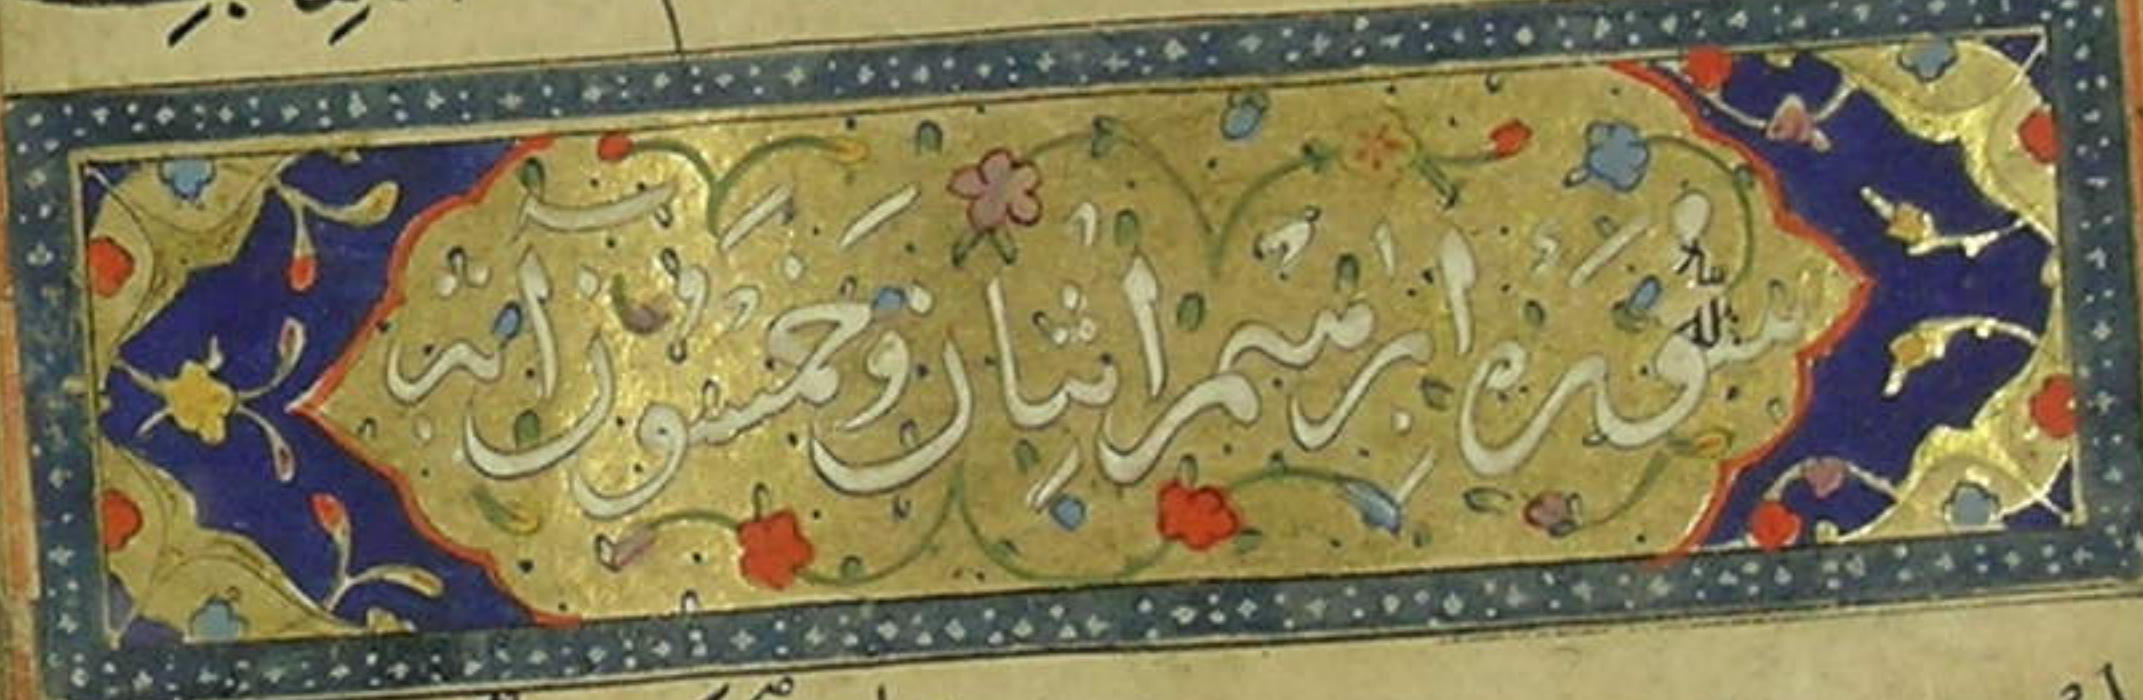 سُورَةُ إِبْرٰهِيمَ إثْنَانِ وَخَمْسُونَ آيَةً